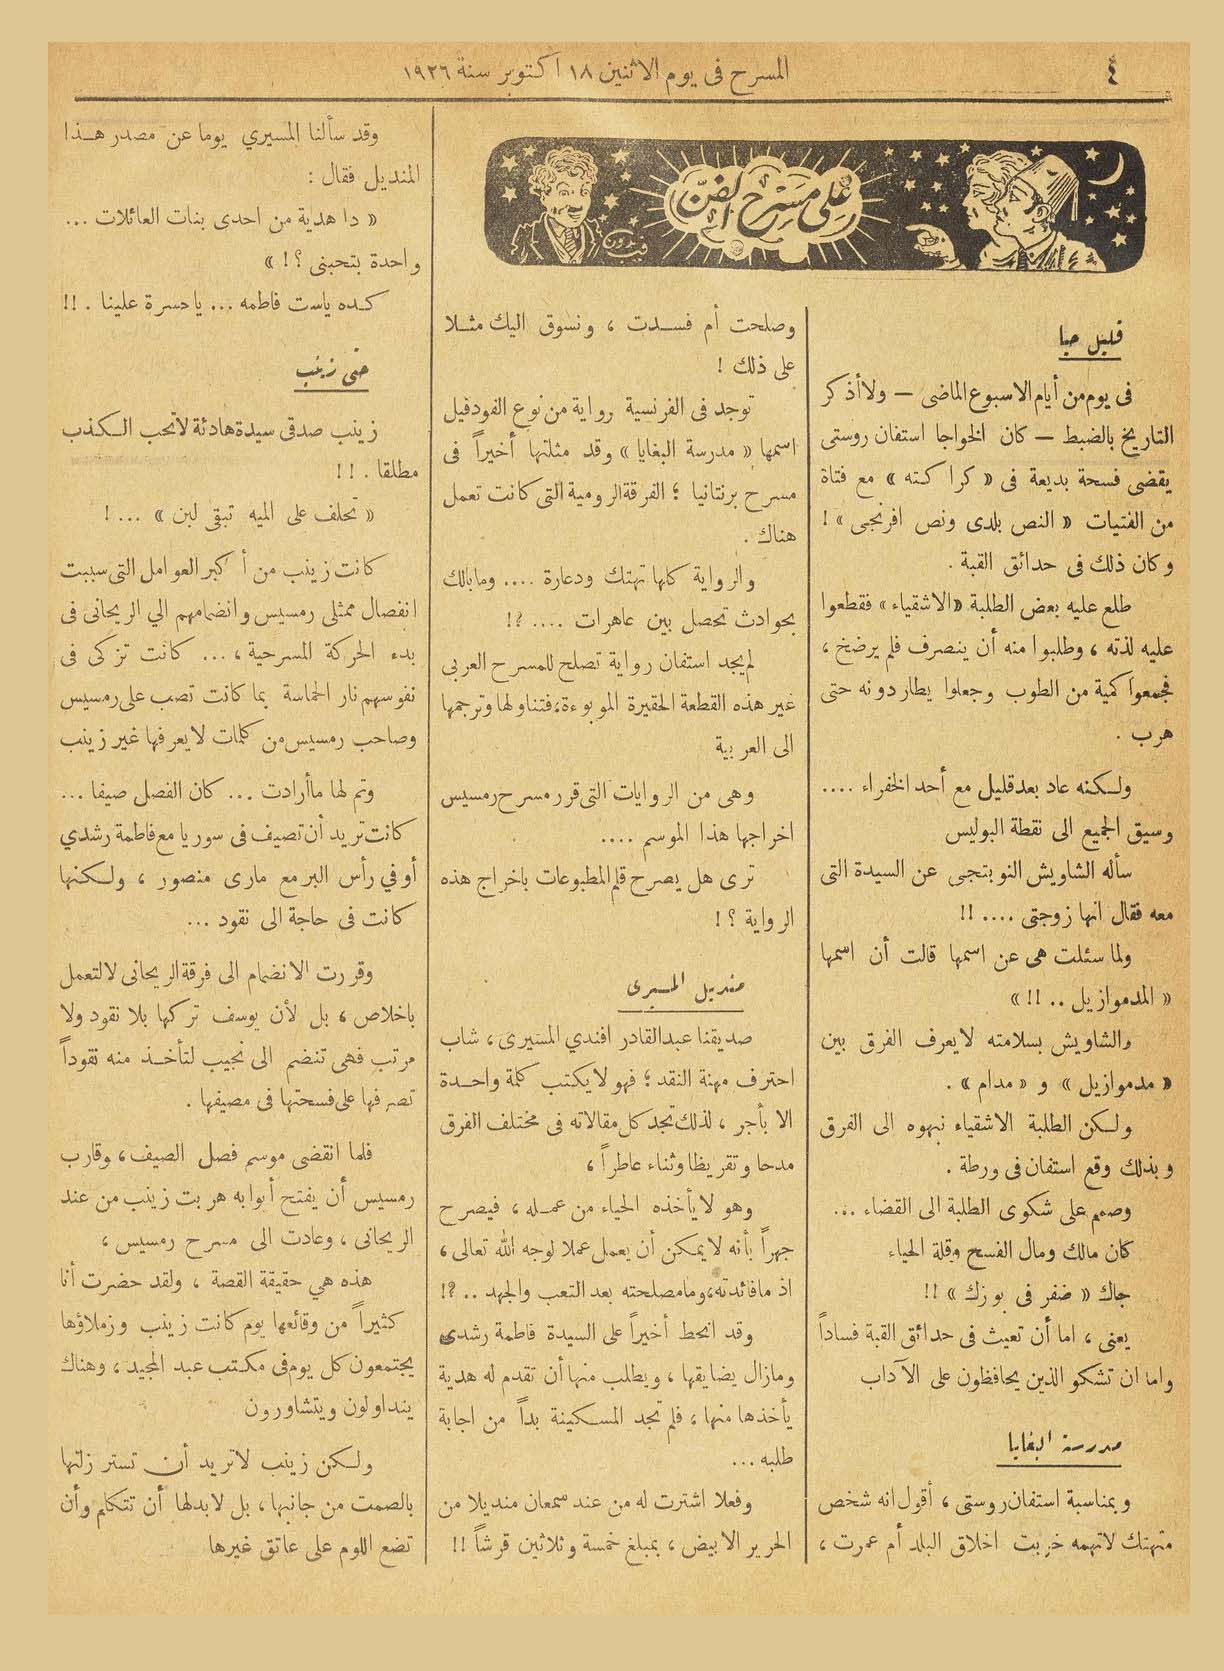 ٤
المسرح فى يوم الاثنين ١٨ اكتوبر سنة ١٩٢٦
على مسرح الفن
قليل حيا
فى يوم من أيام الاسبوع الماضى — ولا أذكر
التاريخ بالضبط — كان الخواجا استفان روستى
يقضى فسحة بديعة فى « كراكته » مع فتاة
من الفتيات « النص بلدى ونص افرنجى » !
وكان ذلك فى حدائق القبة .
طلع عليه بعض الطلبة «الاشقياء» فقطعوا
عليه لذته ، وطلبوا منه أن ينصرف فلم يرضخ ،
فجمعوا كمية من الطوب وجعلوا يطاردونه حتى
هرب .
ولكنه عاد بعد قليل مع أحد الخفراء ....
وسيق الجميع الى نقطة البوليس
سأله الشاويش النوبتجى عن السيدة التى
معه فقال انها زوجتى .... !!
ولما سئلت هى عن اسمها قالت أن اسمها
« المدموازيل .. !! »
والشاويش بسلامته لا يعرف الفرق بين
« مدموازيل » و « مدام » .
ولكن الطلبة الاشقياء نبهوه الى الفرق
وبذلك وقع استفان فى ورطة .
وصمم على شكوى الطلبة الى القضاء ...
كان مالك ومال الفسح وقلة الحياء
جاك « ضفر فى بوزك » !!
يعنى ، اما أن تعيث فى حدائق القبة فساداً
واما ان تشكو الذين يحافظون على الآداب
مدرسة البغايا
وبمناسبة استفان روستى ، أقول انه شخص
متهتك لا تهمه خربت اخلاق البلد أم عمرت ،
وصلحت أم فسدت ، ونسوق اليك مثلا
على ذلك !
توجد فى الفرنسية رواية من نوع الفودفيل
اسمها « مدرسة البغايا » وقد مثلتها أخيراً فى
مسرح برنتانيا ؛ الفرقة الرومية التى كانت تعمل
هناك .
والرواية كلها تهتك ودعارة .... وما بالك
بحوادث تحصل بين عاهرات .... ؟!
لم يجد استفان رواية تصلح للمسرح العربى
غير هذه القطعة الحقيرة الموبوءة، فتناولها وترجمها
الى العربية
وهى من الروايات التى قرر مسرح رمسيس
اخراجها هذا الموسم ....
ترى هل يصرح قلم المطبوعات باخراج هذه
الرواية ؟ !
منديل المسيرى
صديقنا عبد القادر افندي المسيرى ، شاب
احترف مهنة النقد ؛ فهو لا يكتب كلمة واحدة
الا بأجر ، لذلك تجد كل مقالاته فى مختلف الفرق
مدحا وتقريظا وثناء عاطراً ،
وهو لا يأخذه الحياء من عمله ، فيصرح
جهراً بأنه لا يمكن أن يعمل عملا لوجه الله تعالى ،
اذ ما فائدته، وما مصلحته بعد التعب والجهد .. ؟!
وقد انحط أخيراً على السيدة فاطمة رشدى
وما زال يضايقها ، ويطلب منها أن تقدم له هدية
يأخذها منها ، فلم تجد المسكينة بداً من اجابة
طلبه ...
وفعلا اشترت له من عند سمعان منديلا من
الحرير الابيض ، بمبلغ خمسة وثلاثين قرشاً !!
وقد سألنا المسيري يوما عن مصدر هذا
المنديل فقال :
« دا هدية من احدى بنات العائلات ...
واحدة بتحبنى ؟ ! »
كده ياست فاطمه ... ياحسرة علينا . !!
حتى زينب
زينب صدقى سيدة هادئة لا تحب الكذب
مطلقا . ! !
« تحلف على الميه تبقى لبن » ... !
كانت زينب من أكبر العوامل التى سببت
انفصال ممثلى رمسيس وانضمامهم الي الريحانى فى
بدء الحركة المسرحية ، ... كانت تزكى فى
نفوسهم نار الحماسة بما كانت تصب على رمسيس
وصاحب رمسيس من كلمات لا يعرفها غير زينب
وتم لها ما أرادت ... كان الفصل صيفا ...
كانت تريد أن تصيف فى سوريا مع فاطمة رشدي
أو في رأس البر مع مارى منصور ، ولكنها
كانت فى حاجة الى نقود ...
وقررت الانضمام الى فرقة الريحانى لا لتعمل
باخلاص ، بل لأن يوسف تركها بلا نقود ولا
مرتب فهى تنضم الى نجيب لتأخذ منه نقوداً
تصرفها على فسحتها فى مصيفها .
فلما انقضى موسم فصل الصيف ، وقارب
رمسيس أن يفتح أبوابه هربت زينب من عند
الريحانى ، وعادت الى مسرح رمسيس ،
هذه هي حقيقة القصة ، ولقد حضرت أنا
كثيراً من وقائعها يوم كانت زينب وزملاؤها
يجتمعون كل يوم فى مكتب عبد المجيد ، وهناك
يتداولون ويتشاورون
ولكن زينب لا تريد أن تستر زلتها
بالصمت من جانبها ، بل لابد لها أن تتكلم وأن
تضع اللوم على عاتق غيرها